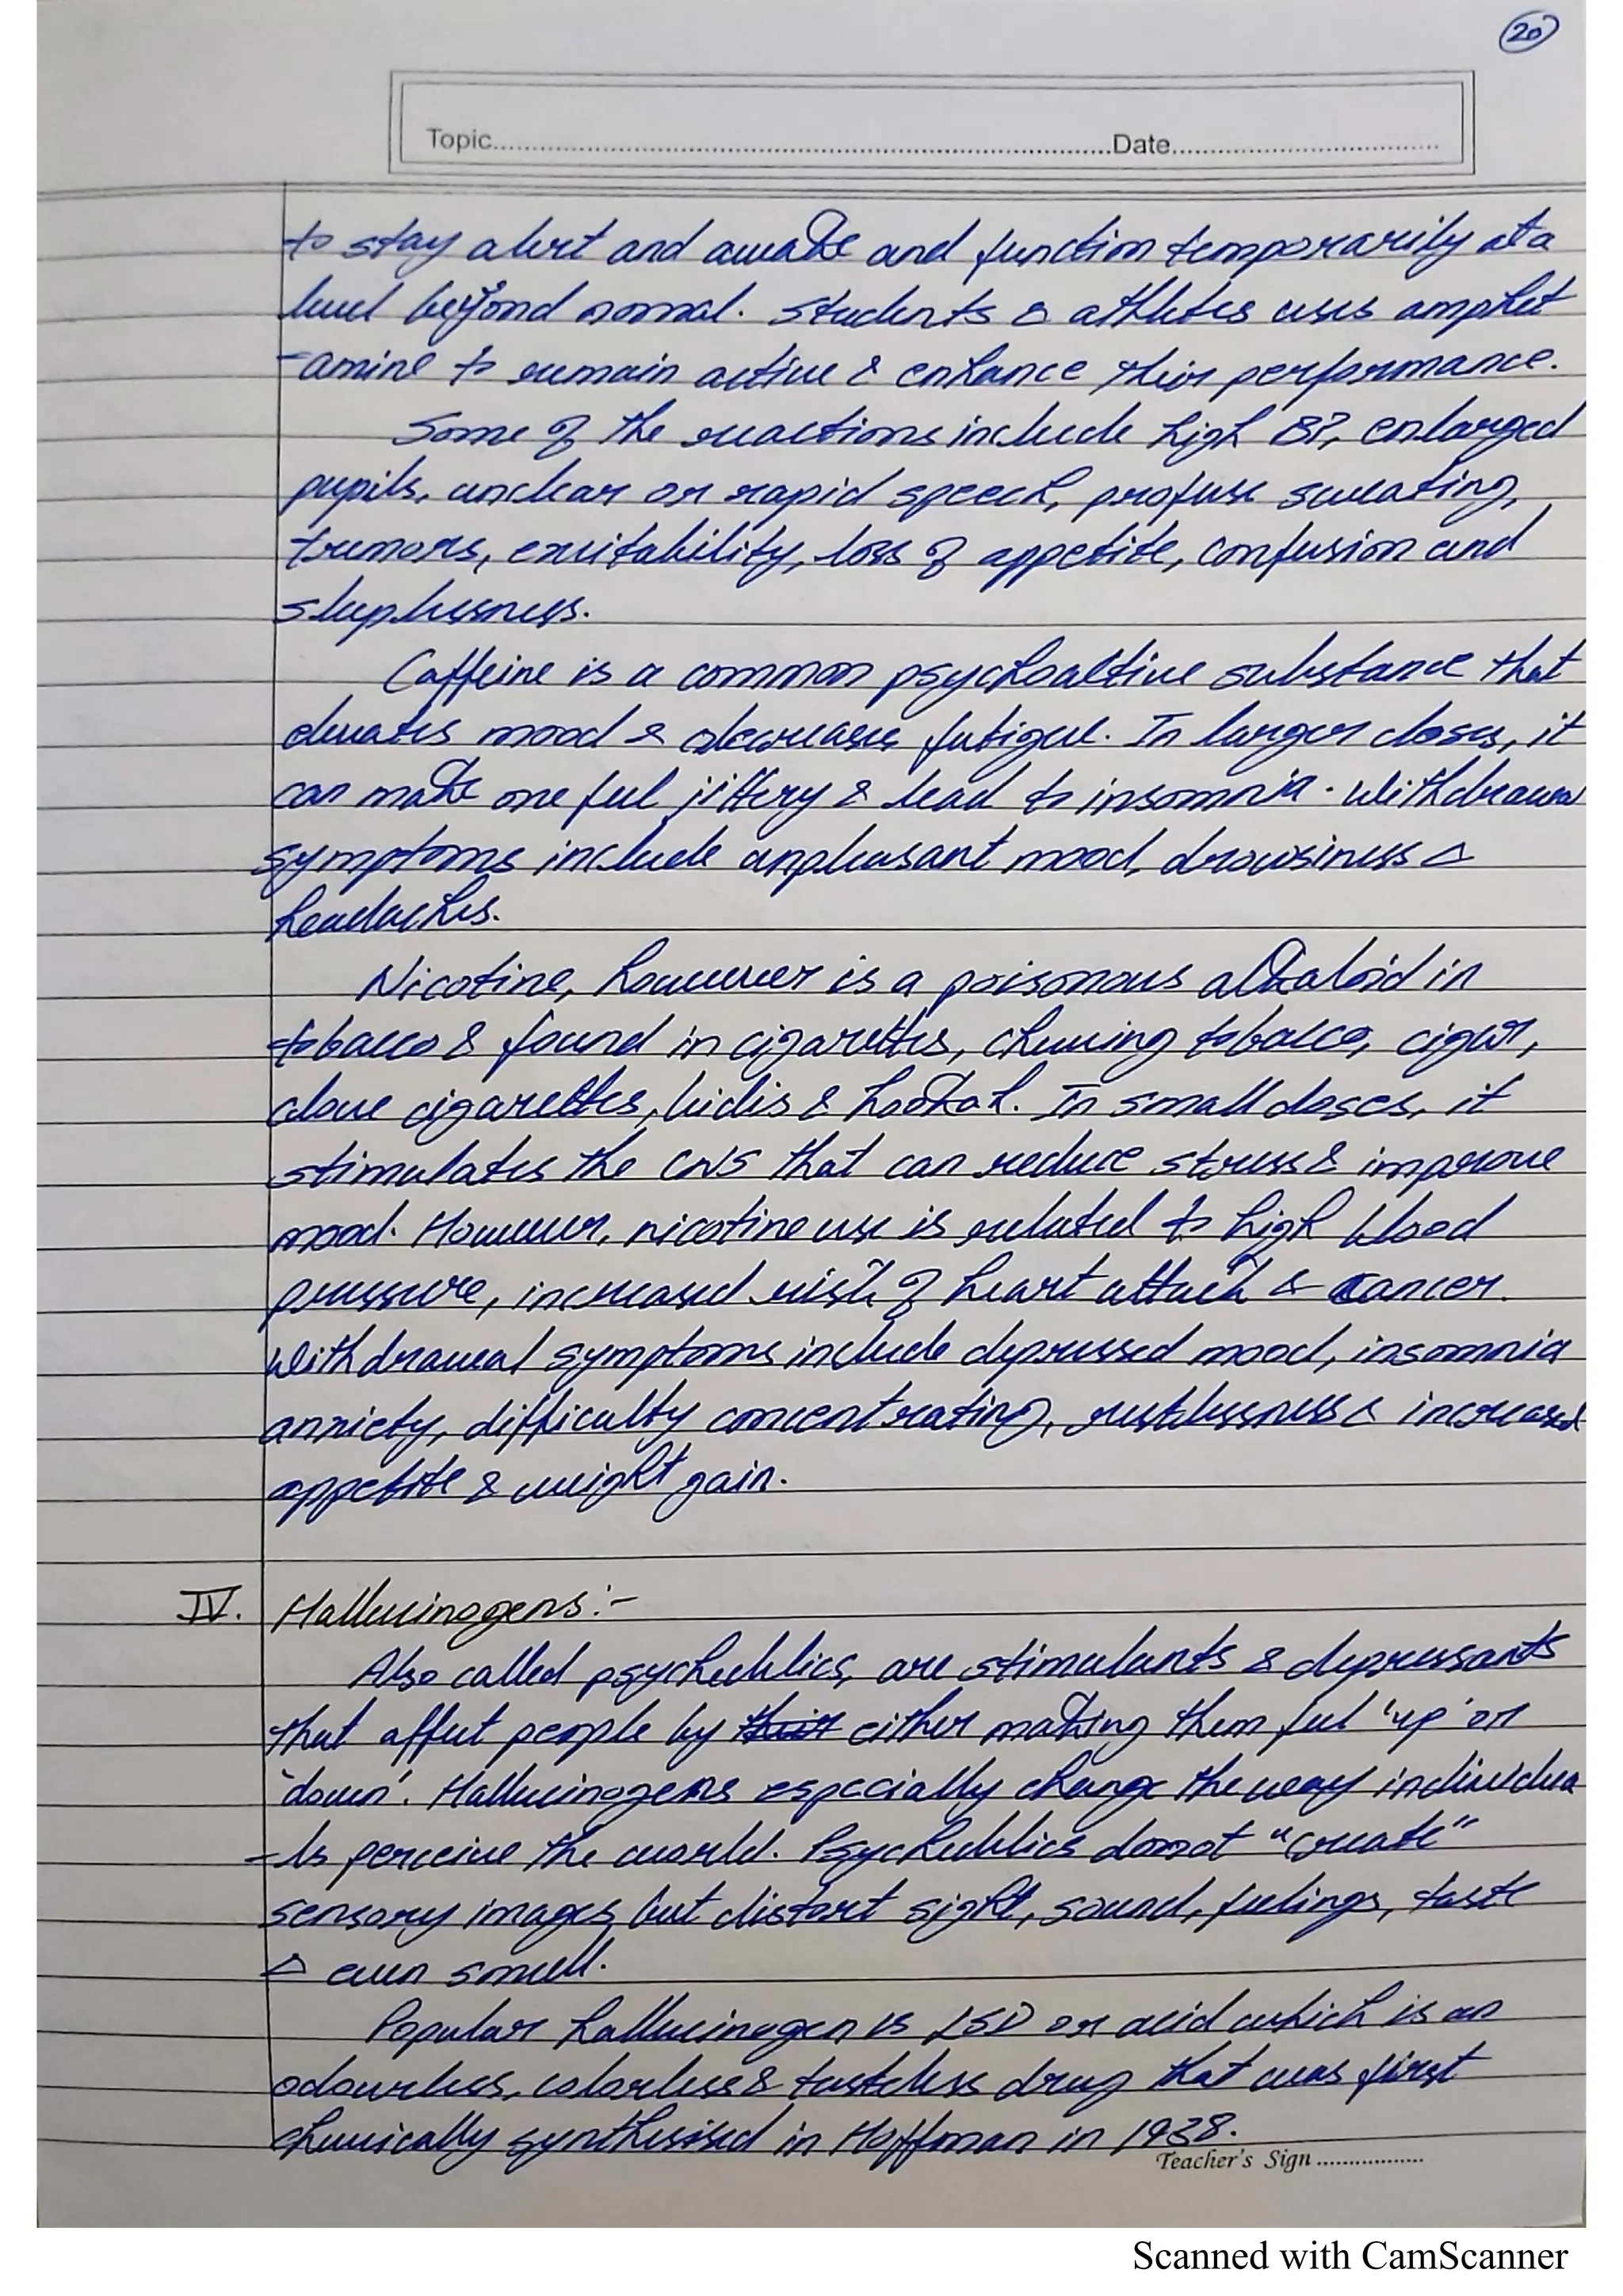 20
Topic..........Date..........
to stay alert and awake and function temporarily at a
level beyond normal. Students & athletes uses amphet
-amine to remain active & enhance their performance.
Some of the reactions include high BP, enlarged
pupils, unclear or rapid speech, profuse sweating,
tremors, excitability, loss of appetite, confusion and
sleeplessness.
Caffeine is a common psychoactive substance that
elevates mood & decreases fatigue. In larger doses, it
can make one feel jittery & lead to insomnia. Withdrawal
symptoms include unpleasant mood, drowsiness &
headaches.
Nicotine, however is a poisonous alkaloid in
tobacco & found in cigarettes, chewing tobacco, cigar,
clove cigarettes, bidis & hookah. In small doses, it
stimulates the CNS that can reduce stress & improve
mood. However, nicotine use is related to high blood
pressure, increased risk of heart attack & cancer.
Withdrawal symptoms include depressed mood, insomnia
anxiety, difficulty concentrating, restlessness & increased
appetite & weight gain.
IV. Hallucinogens:-
Also called psychedelics, are stimulants & depressants
that affect people by their either making them feel 'up' or
'down'. Hallucinogens especially change the way individua
-ls perceive the world. Psychedelics donot "create"
sensory images but distort sight, sound, feelings, taste
& even smell.
Popular hallucinogen is LSD or acid which is an
odourless, colorless & tasteless drug that was first
chemically synthesised in Hoffman in 1938.
Teacher's Sign ..........
Scanned with CamScanner